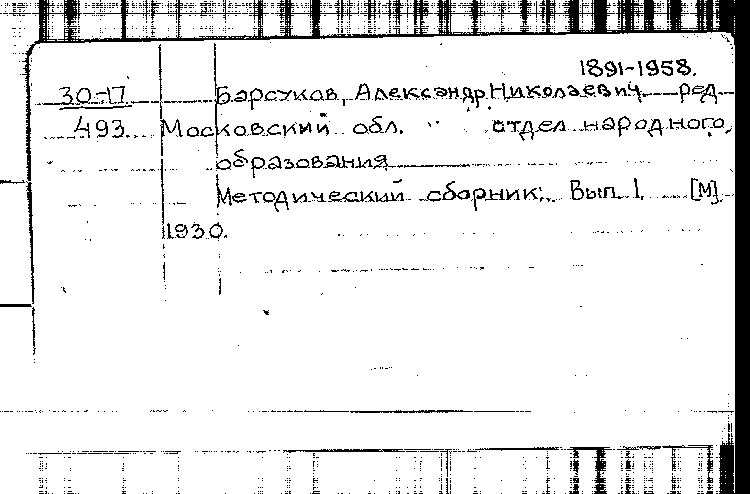 1891-1958.
30-17 Барсуков, Александр Николаевич ред
493 Московский обл. отдел народного
образования
Методический сборник: Вып. 1. [М]
1930.